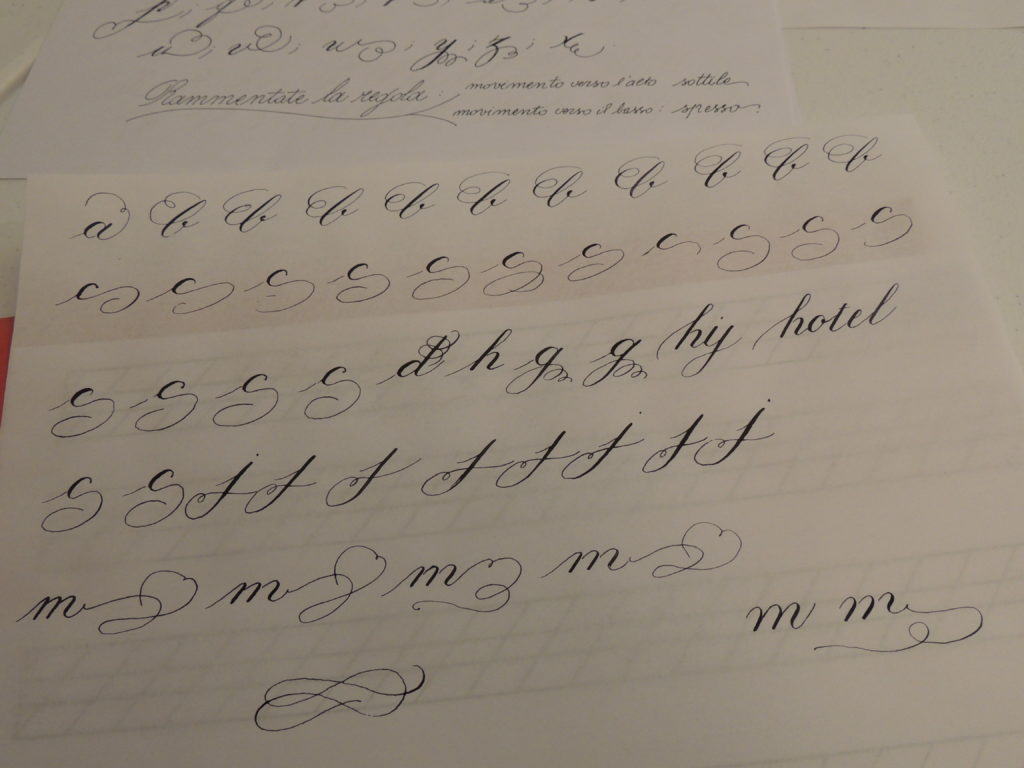 u; u; w; y; z; x
Rammentate la regola: movimento verso l'alto sottile
movimento verso il basso: spesso.
a b b b b b b b b b b
s s s s s s s s s s s
s s s s d h g g hij hotel
s s j f f f f f f f
m m m m
m m